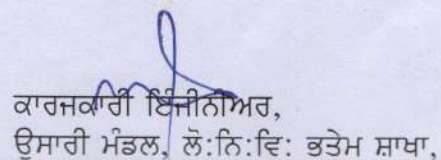 ਕਾਰਜਕਾਰੀ ਇੰਜੀਨੀਅਰ,
ਉਸਾਰੀ ਮੰਡਲ, ਲੋ:ਨਿ:ਵਿ: ਭਤੇਮ ਸ਼ਾਖਾ,